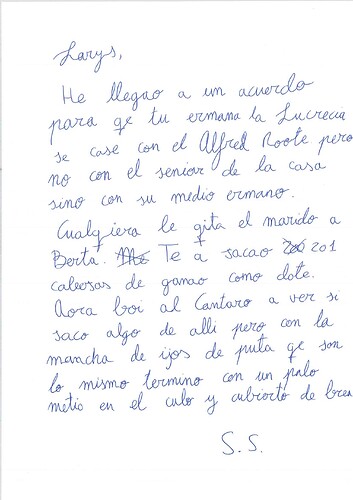 Larys,
He llegao a un acuerdo
para qe tu ermana la Lucrecia
se case con el Alfred Roote pero
no con el senior de la casa
sino con su medio ermano.
Cualqiera le qita el marido a
Berta. Te a sacao 201
calesas de ganao como dote.
Aora boi al Cantaro a ver si
saco algo de alli pero con la
mancha de ijos de puta qe son
lo mismo termino con un palo
metio en el culo y cubiorto de brea
S.S.